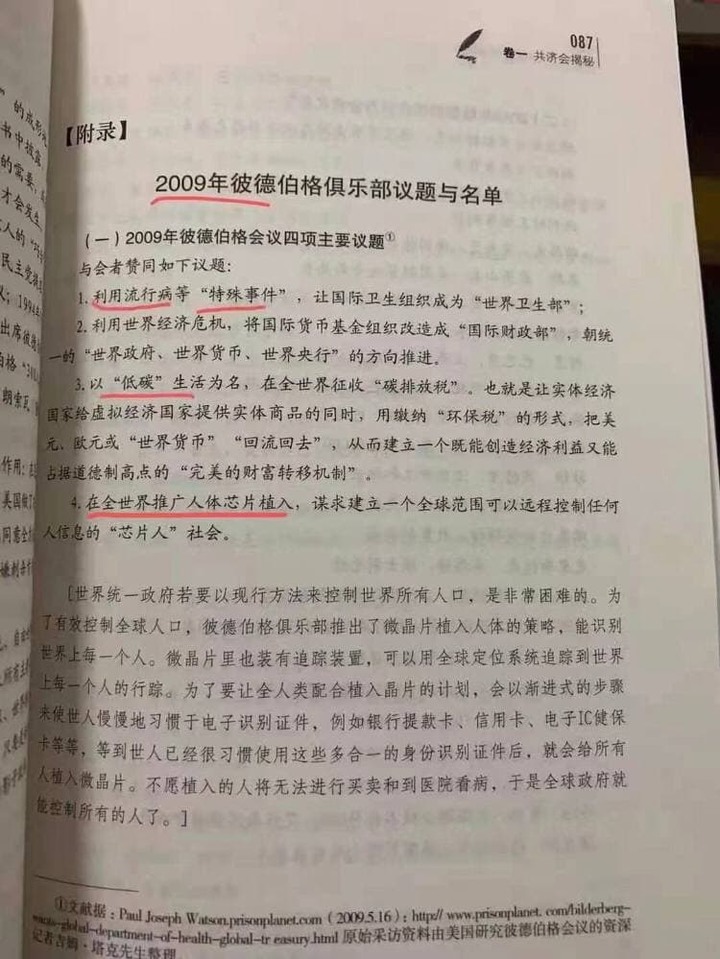 087
卷一 共济会揭秘
【附录】
2009年彼德伯格俱乐部议题与名单
(一) 2009年彼德伯格会议四项主要议题①
与会者赞同如下议题:
1. 利用流行病等“特殊事件”，让国际卫生组织成为“世界卫生部”;
2. 利用世界经济危机，将国际货币基金组织改造成“国际财政部”，朝统
一的“世界政府、世界货币、世界央行”的方向推进。
3. 以“低碳”生活为名，在全世界征收“碳排放税”。也就是让实体经济
国家给虚拟经济国家提供实体商品的同时，用缴纳“环保税”的形式，把美
元、欧元或“世界货币”“回流回去”，从而建立一个既能创造经济利益又能
占据道德制高点的“完美的财富转移机制”。
4. 在全世界推广人体芯片植入，谋求建立一个全球范围可以远程控制任何
人信息的“芯片人”社会。
[世界统一政府若要以现行方法来控制世界所有人口，是非常困难的。为
了有效控制全球人口，彼德伯格俱乐部推出了微晶片植入人体的策略，能识别
世界上每一个人。微晶片里也装有追踪装置，可以用全球定位系统追踪到世界
上每一个人的行踪。为了要让全人类配合植入晶片的计划，会以渐进式的步骤
来使世人慢慢地习惯于电子识别证件，例如银行提款卡、信用卡、电子IC健保
卡等等，等到世人已经很习惯使用这些多合一的身份识别证件后，就会给所有
人植入微晶片。不愿植入的人将无法进行买卖和到医院看病，于是全球政府就
能控制所有的人了。]
①文献据：Paul Joseph Watson.prisonplanet.com (2009.5.16)；http:// www.prisonplanet.com/bilderberg-
wants-global-department-of-health-global-tr easury.html 原始采访资料由美国研究彼德伯格会议的资深
记者吉姆·塔克先生整理
” 的成形
书中披露
的需要，
才会发生
民主党
; 1994年
出席彼
伯格“
作用:
美国做
同意全